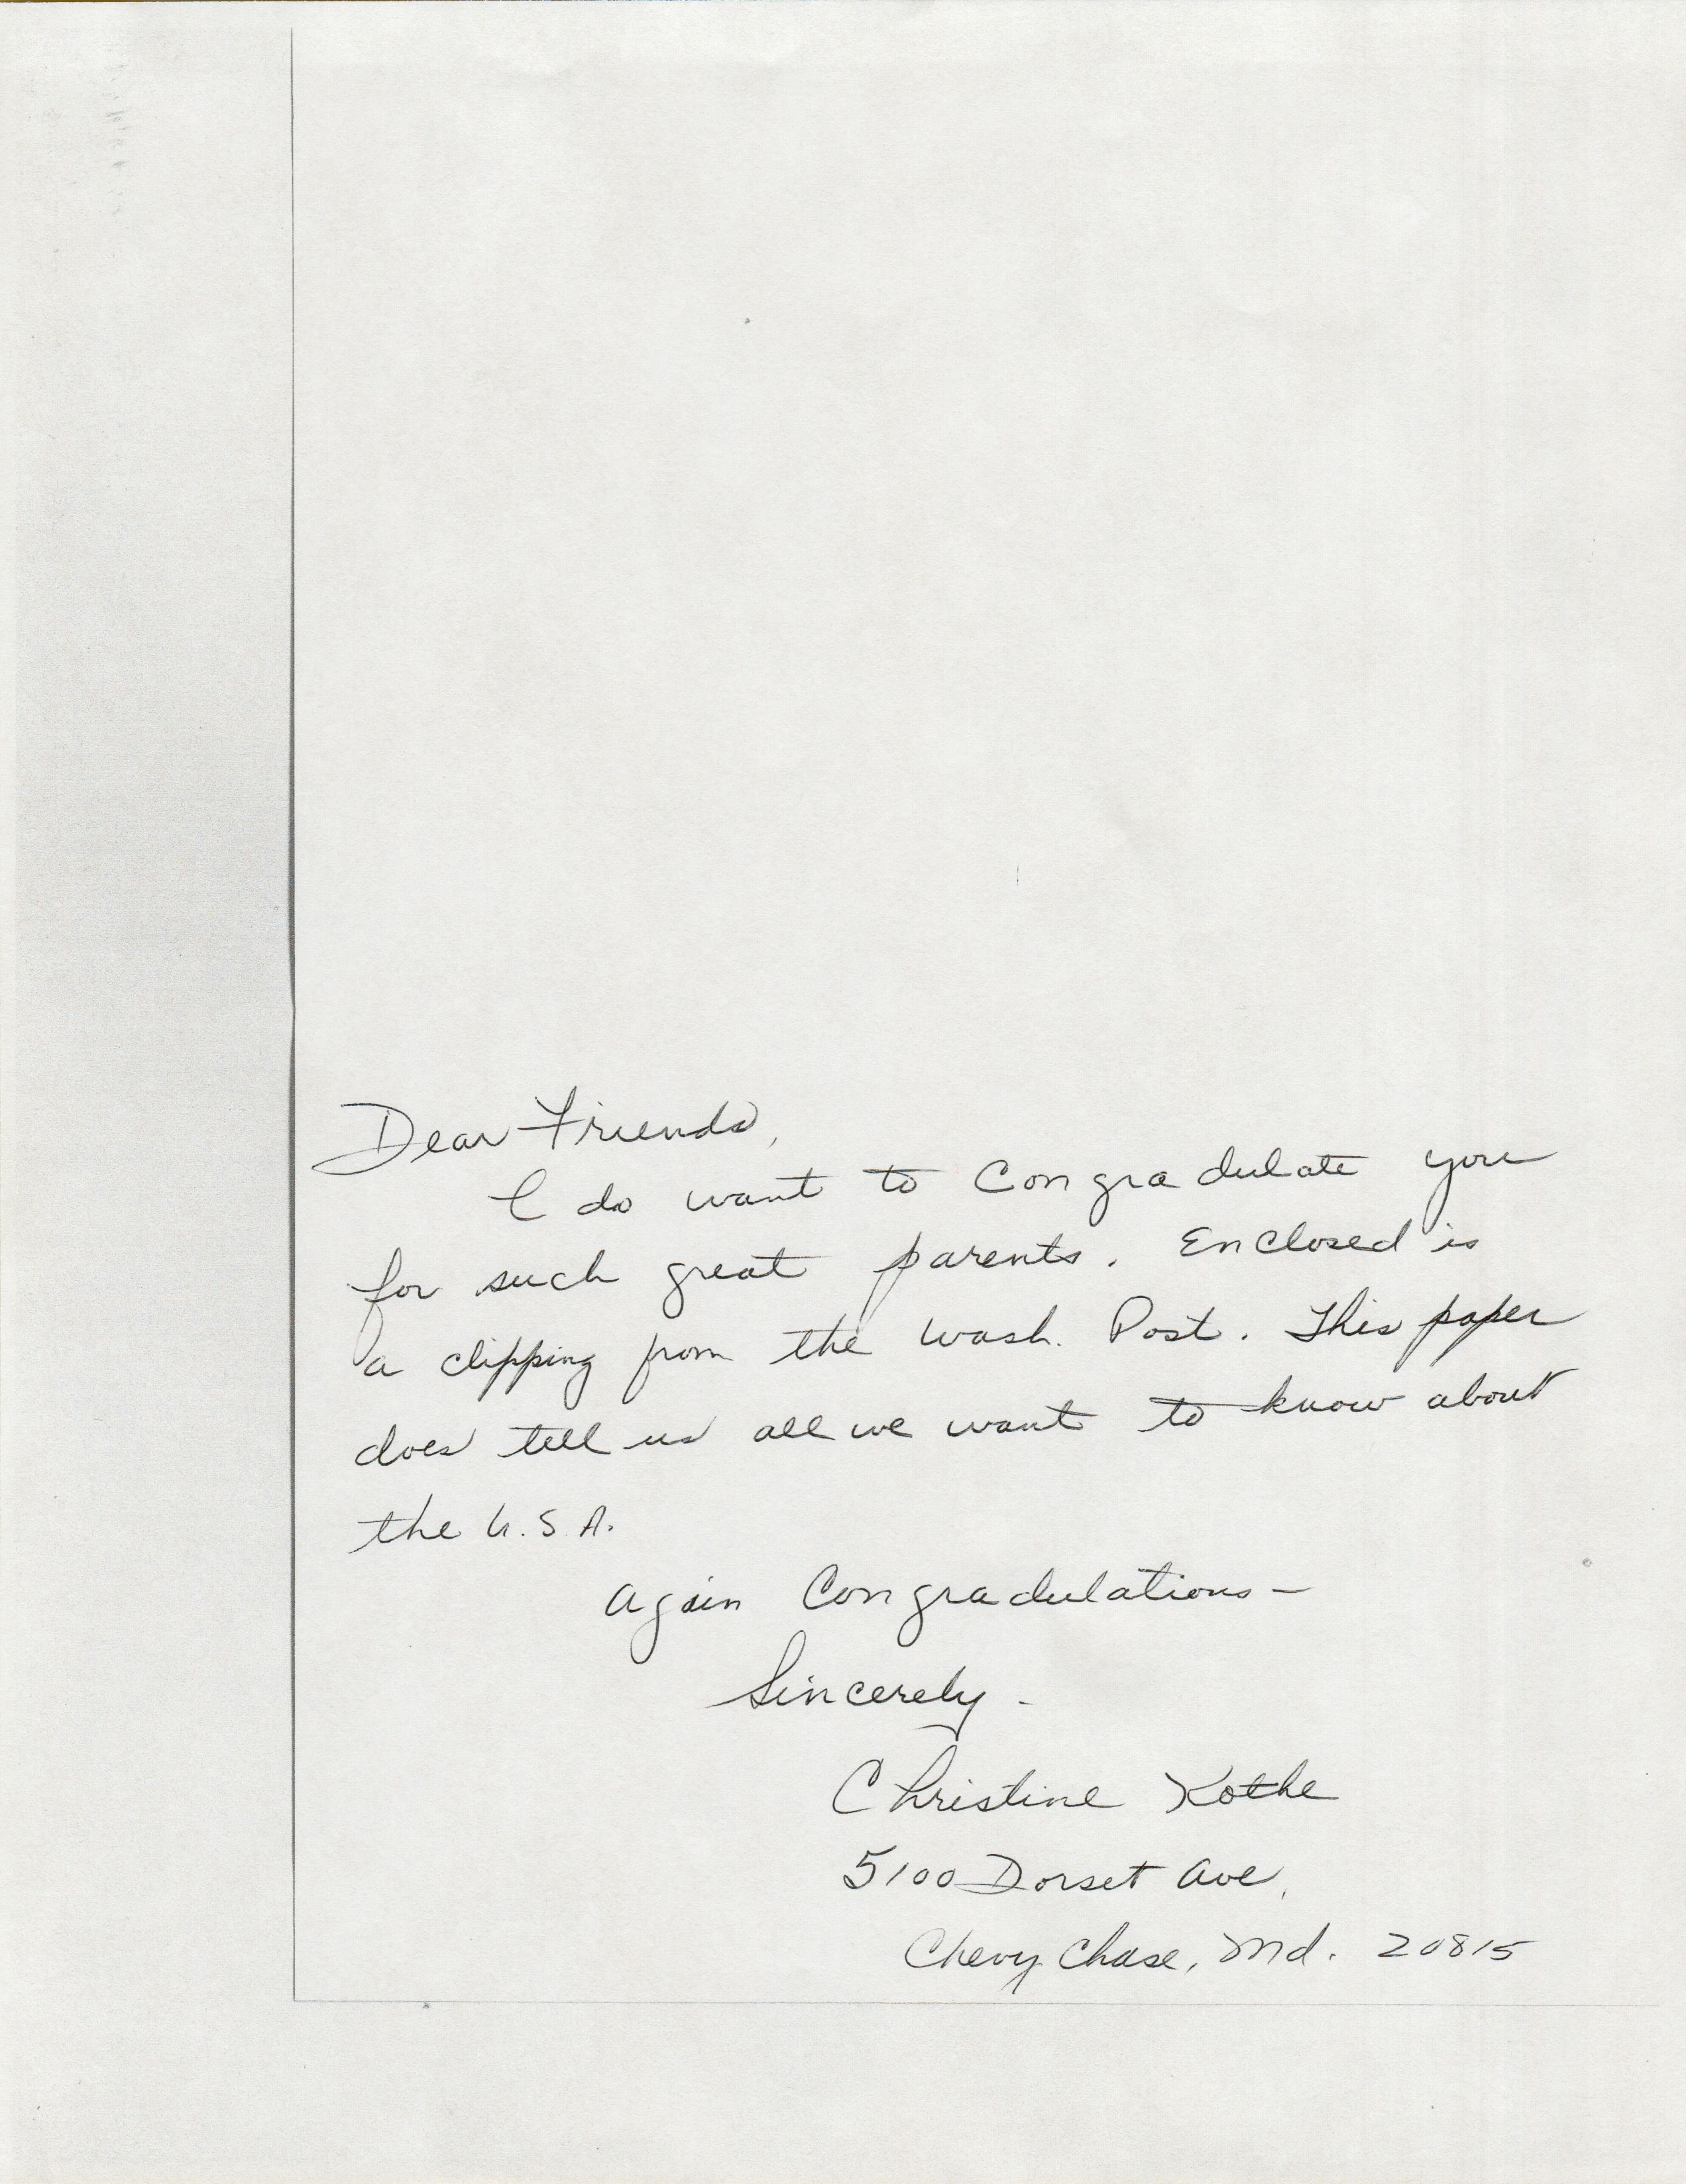 Dear Friends,
I do want to Congradulate you
for such great parents. Enclosed is
a clipping from the Wash. Post. This paper
does tell us all we want to know about
the U.S.A.
Again Congradulations —
Sincerely -
Christine Kothe
5100 Dorset Ave,
Chevy Chase, Md. 20815